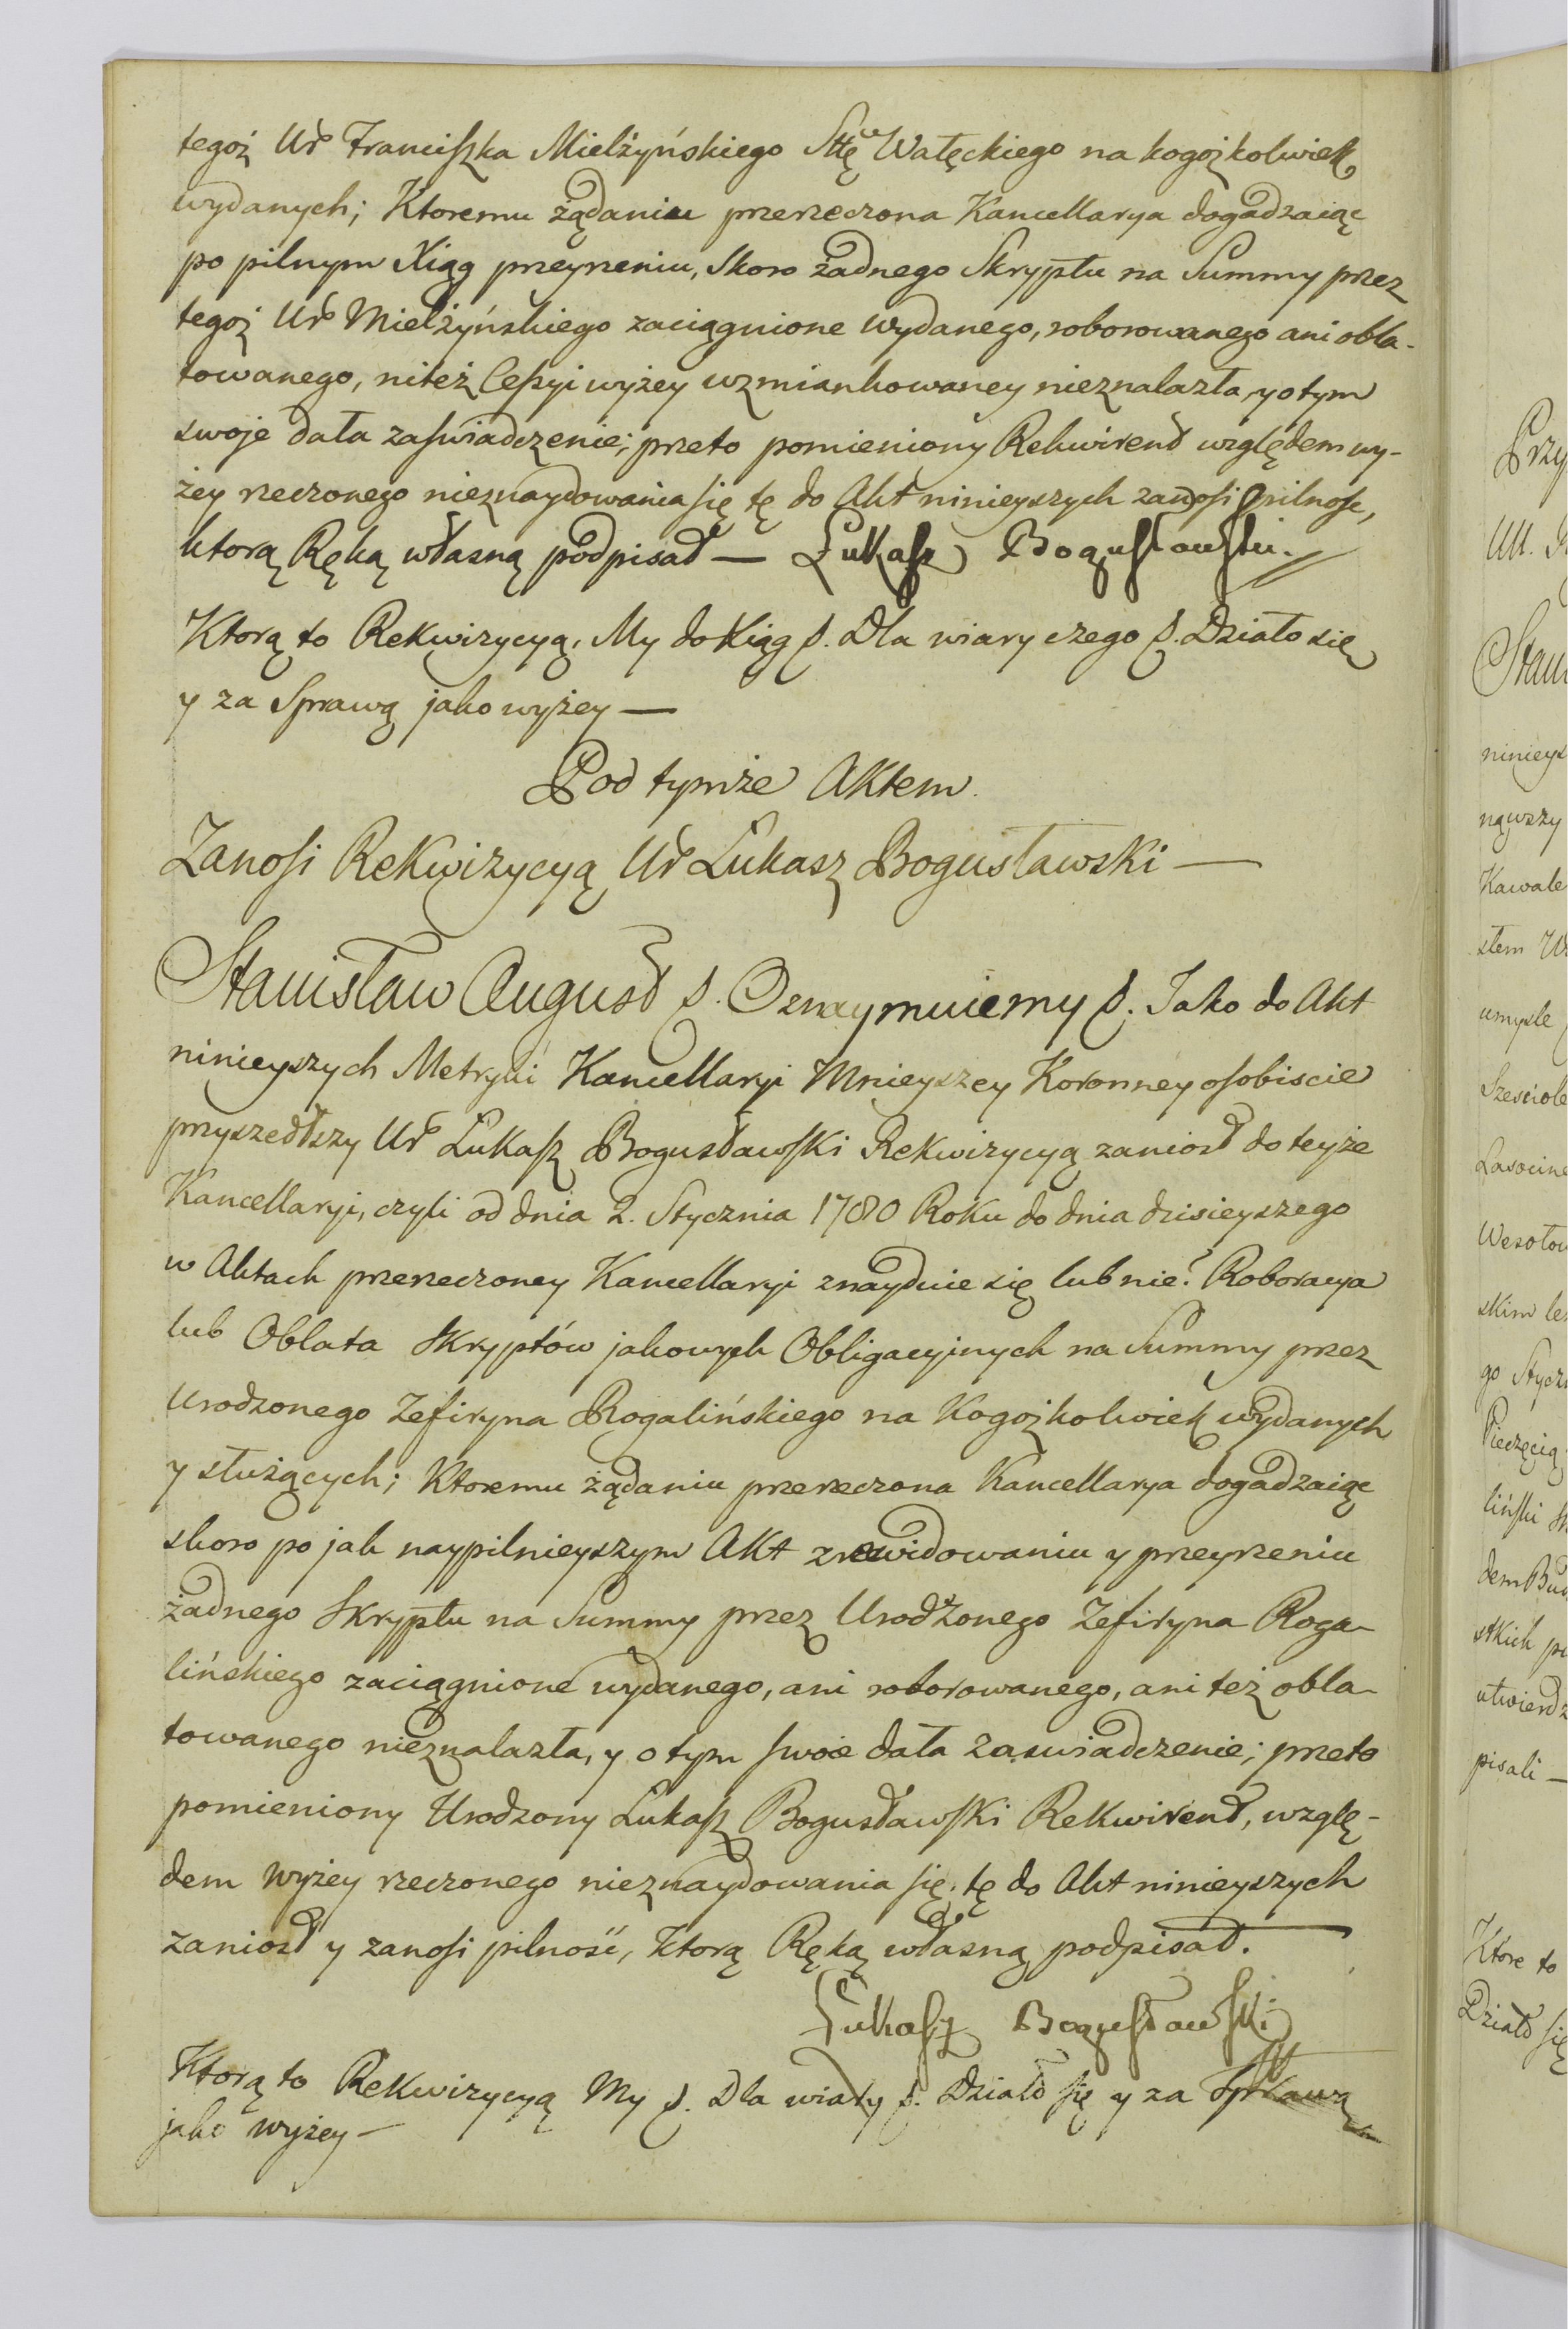 tegoż Ur Franciszka Mielżyńskiego Sttę Wałęckiego na kogożkolwiek
wydanych; Ktoremu żądaniu przerzeczona Kancellarya dogadzaiąc
po pilnym Xiąg przeyrzeniu, Skoro żadnego Skryptu na Summy przez
tegoż Ur Mielżyńskiego zaciągnione wydanego, roborowanego ani obla-
towanego, niteż Cessyi wyżey wzmiankowaney nieznalazła, y o tym
swoje dała zaświadczenie; przeto pomieniony Rekwirent względem wy-
żey rzeczonego nieznaydowania się tę do Akt ninieyszych zanosi pilnosc,
ktorą Ręką własną podpisał — Łukasz Bogusławski.
Ktorą to Rekwizycyą, My do Xiąg p. Dla wiary czego p. Działo się
y za Sprawą jako wyżey —
Pod tymże Aktem.
Zanosi Rekwizycyą Ur Łukasz Bogusławski —
Stanisław August p. Oznaymuiemy p. Jako do Akt
ninieyszych Metryki Kancellaryi Mnieyszey Koronney osobiscie
przyszedłszy Ur Łukasz Bogusławski Rekwizycyą zaniosł do teyże
Kancellaryi, czyli od dnia 2. Stycznia 1780 Roku do dnia dzisieyszego
w Aktach przerzeczoney Kancellaryi znayduie się lub nie? Roboracya
lub Oblata Skryptów jakowych Obligacyinych na Summy przez
Urodzonego Zefiryna Rogalińskiego na Kogożkolwiek wydanych
y służących; Ktoremu żądaniu przerzeczona Kancellarya dogadzaiąc
skoro po jak naypilnieyszym Akt zrewidowaniu y przeyrzeniu
żadnego Skryptu na Summy przez Urodzonego Zefiryna Roga-
lińskiego zaciągnione wydanego, ani roborowanego, ani też obla-
towanego nieznalazła, y o tym swoie dała zaswiadczenie; przeto
pomieniony Urodzony Łukasz Bogusławski Rekwirent, wzglę-
dem wyżey rzeczonego nieznaydowania się, tę do Akt ninieyszych
zaniosł y zanosi pilność, Ktorą Ręką własną podpisał.
Łukasz Bogusławski
Ktorą to Rekwizycyą My p. Dla wiary p. Działo się y za Sprawą
jako wyżey —